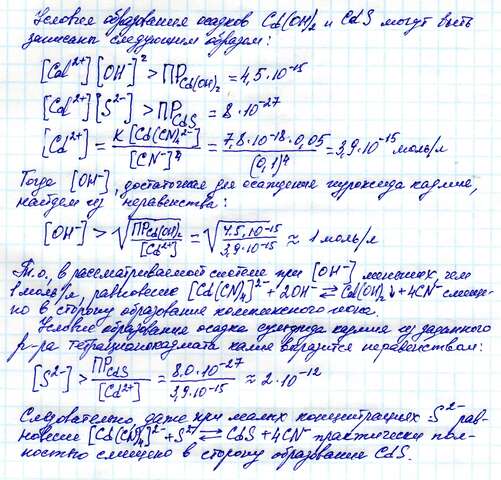 Условия образования осадков Cd(OH)₂ и CdS могут быть
записаны следующим образом:
[Cd²⁺][OH⁻]² > ПР Cd(OH)₂ = 4,5·10⁻¹⁵
[Cd²⁺][S²⁻] > ПР CdS = 8·10⁻²⁷
[Cd²⁺] = K[Cd(CN)₄²⁻] / [CN⁻]⁴ = 7,8·10⁻¹⁸·0,05 / (0,1)⁴ = 3,9·10⁻¹⁵ моль/л
Тогда [OH⁻], достаточная для осаждения гидроксида кадмия,
найдем из неравенства:
[OH⁻] > √(ПР Cd(OH)₂ / [Cd²⁺]) = √(4.5,10⁻¹⁵ / 3,9·10⁻¹⁵) ≈ 1 моль/л
Т.о., в рассматриваемой системе при [OH⁻] меньших, чем
1 моль/л, равновесие [Cd(CN)₄]²⁻ + 2OH⁻ ⇄ Cd(OH)₂↓ + 4CN⁻ смеще-
но в сторону образования комплексного иона.
Условие образования осадка сульфида кадмия из заданного
р-ра тетрацианокадмата калия выразится неравенством:
[S²⁻] > ПР CdS / [Cd²⁺] = 8,0·10⁻²⁷ / 3,9·10⁻¹⁵ ≈ 2·10⁻¹²
Следовательно, даже при малых концентрациях S²⁻ рав-
новесие [Cd(CN)₄]²⁻ + S²⁻ ⇄ CdS + 4CN⁻ практически пол-
ностью смещено в сторону образования CdS.